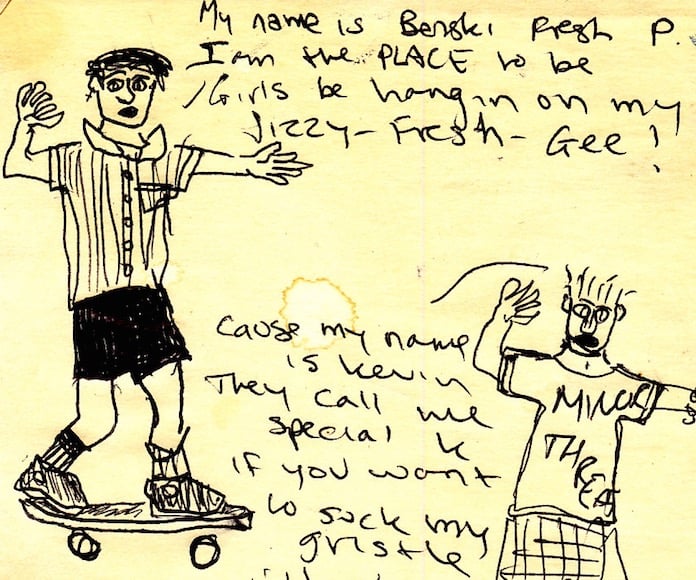 My name is Benski Fresh P.
I am the PLACE to be
/Girls be hangin on my
Jizzy-Fresh-Gee!
Cause my name
is Kevin
They call me
special K
if you want
to suck my
gristle
MINOR
THREAT